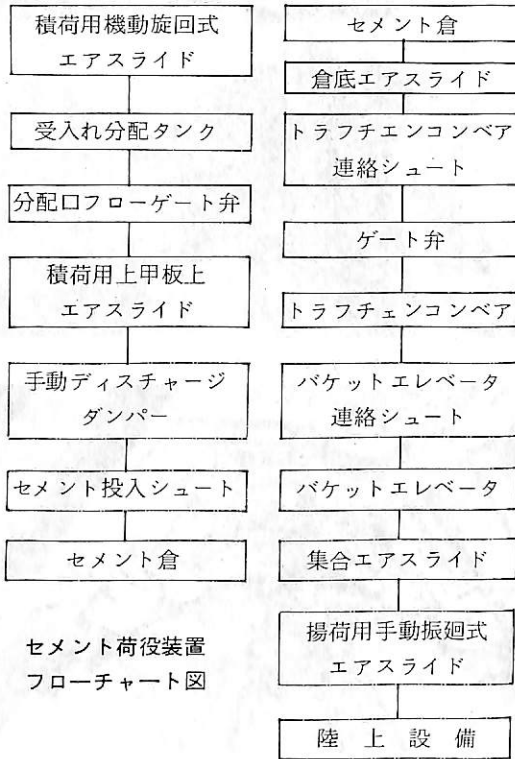 積荷用機動旋回式
エアスライド
受入れ分配タンク
分配口フローゲート弁
積荷用上甲板上
エアスライド
手動ディスチャージ
ダンパー
セメント投入シュート
セメント倉
セメント荷役装置
フローチャート図
セメント倉
倉底エアスライド
トラフチエンコンベア
連絡シュート
ゲート弁
トラフチェンコンベア
バケットエレベータ
連絡シュート
バケットエレベータ
集合エアスライド
揚荷用手動振廻式
エアスライド
陸上設備